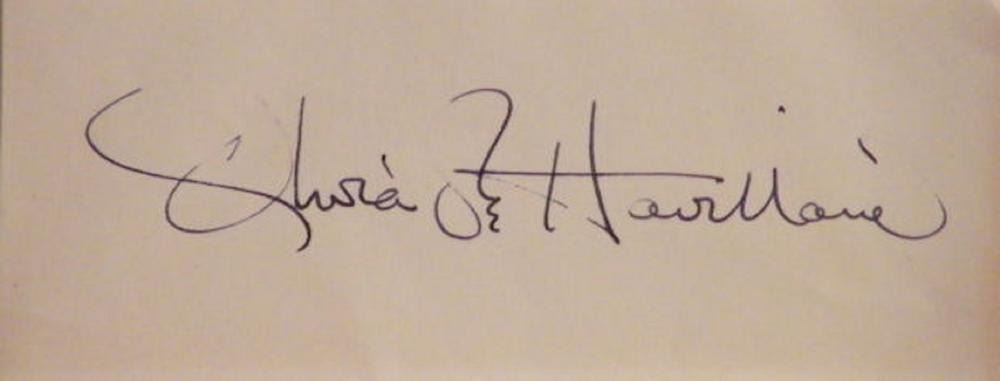 Olivia de Havilland